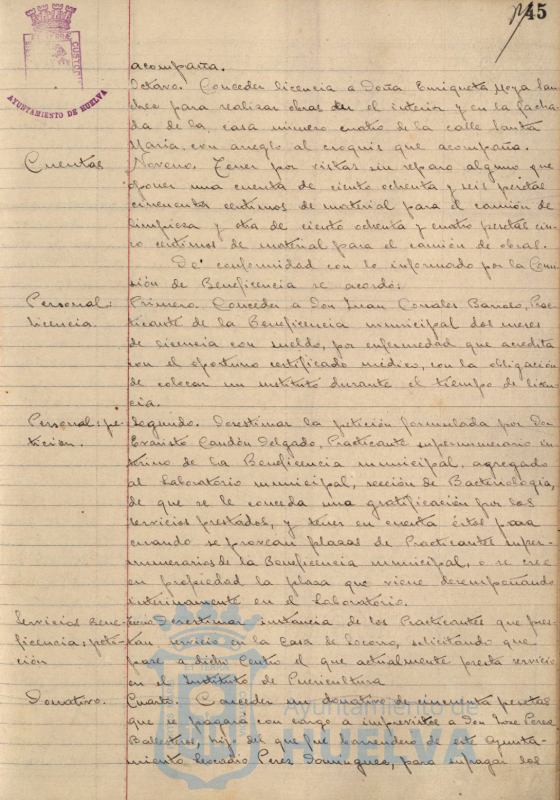 45
AYUNTAMIENTO DE HUELVA
acompaña.
Octavo. Conceder licencia a Doña Enriqueta Moya San
chez para realizar obras en el interior y en la facha-
da de la casa número cuatro de la calle Santa
María, con arreglo al croquis que acompaña.
Cuentas
Noveno. Tener por vistas sin reparo alguno que
oponer una cuenta de ciento ochenta y seis pesetas
cincuenta centimos de material para el camión de
limpieza y otra de ciento ochenta y cuatro pesetas cin-
co centimos de material para el camión de obras.
De conformidad con lo informado por la Comi-
sión de Beneficencia se acordó:
Personal:
licencia.
Primero. Conceder a Don Juan Corrales Barroso, Prac-
ticante de la Beneficencia municipal dos meses
de licencia con sueldo, por enfermedad que acredita
con el oportuno certificado médico, con la obligación
de colocar un sustituto durante el tiempo de licen-
cia.
Personal: pe-
ticion.
Segundo. Desestimar la petición formulada por Don
Evaristo Candón Delgado, Practicante supernumerario in-
terino de la Beneficencia municipal, agregado
al Laboratorio municipal, sección de Bacteriologia,
de que se le conceda una gratificación por los
servicios prestados, y tener en cuenta éstos para
cuando se provean plazas de Practicantes super-
numerarios de la Beneficencia municipal, o se cree
en propiedad la plaza que viene desempeñando
interinamente en el Laboratorio.
Servicios Bene-
ficencia; peti-
ción
Desestimar instancia de los Practicantes que pres-
tan servicio en la Casa de Socorro, solicitando que
pase a dicho Centro el que actualmente presta servicio
en el Instituto de Puericultura
Donativo.
Cuarto. Conceder un donativo de cincuenta pesetas
que se pagará con cargo a imprevistos a Don Jose Perez
Ballesteros, hijo del que fue barrendero de este Ayunta-
miento Perez Dominguez, para sufragar los
Ayuntamiento de
HUELVA